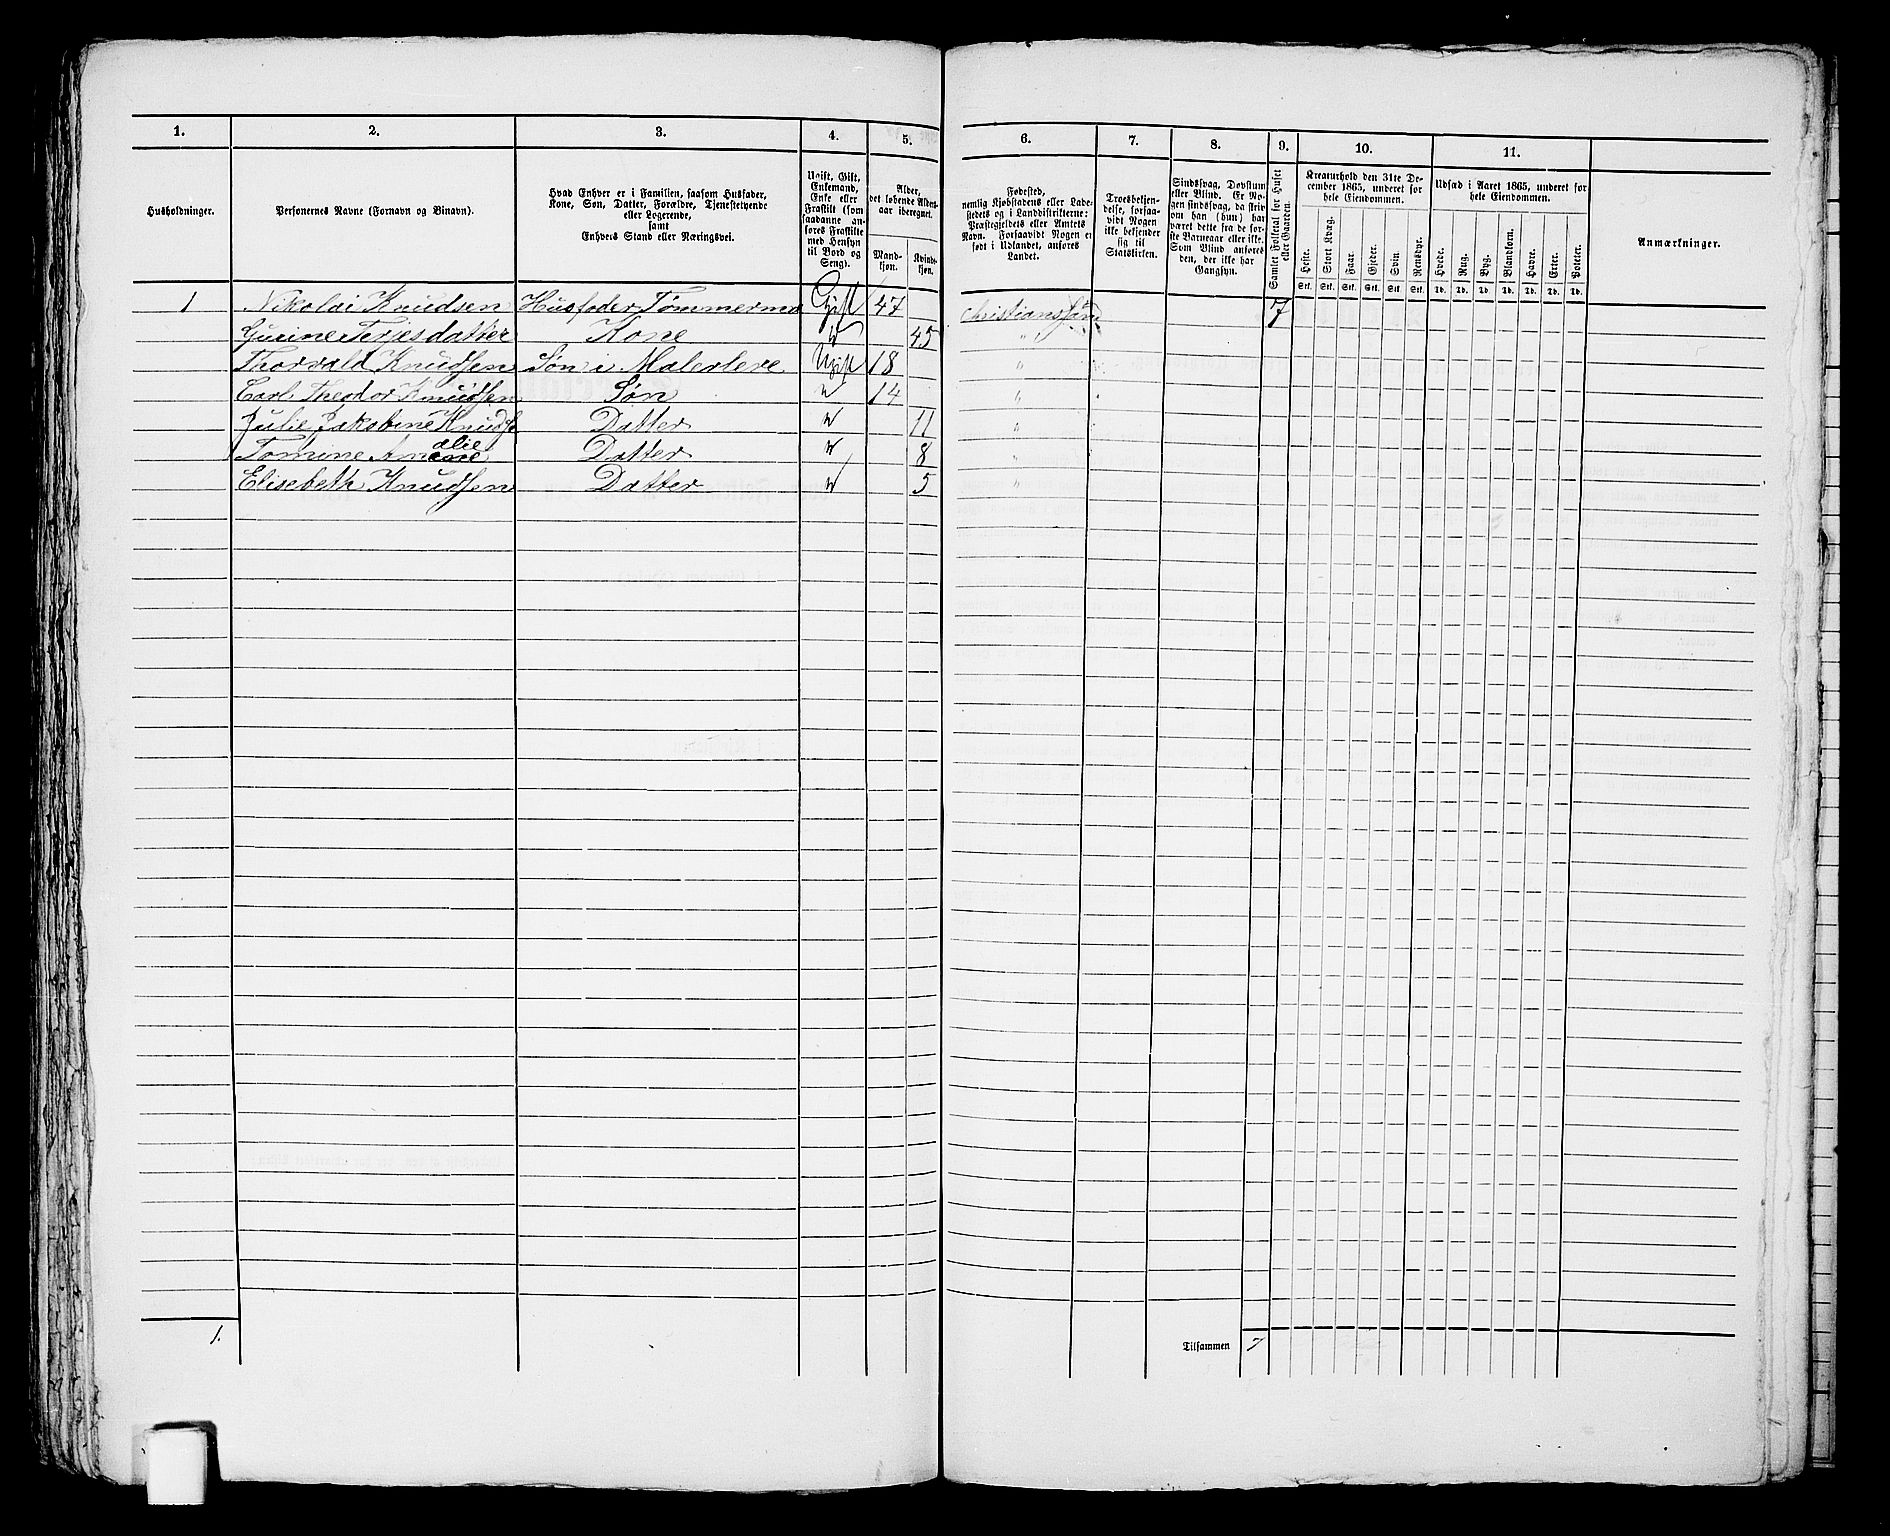 1. 2. 3. 4. 5. 6. 7. 8. 9. 10. 11.
Husholdninger.
Personernes Navne (Fornavn og Binavn).
Hvad Enhver er i Familien, saasom Husfader,
Kone, Søn, Datter, Forældre, Tjenestetyende
eller Logerende,
samt
Enhvers Stand eller Næringsvei.
Ugift, Gift,
Enkemand,
Enke eller
Fraskilt (som
saadanne an-
føres Fraskilte
med Hensyn
til Bord og
Seng).
Alder,
det løbende Alders-
aar iberegnet.
Mand-
kjøn.
Kvind-
kjøn.
Fødested,
nemlig Kjøbstadens eller Lade-
stedets og i Landdistrikterne:
Præstegjeldets eller Amtets
Navn. Forsaavidt Nogen er
født i Udlandet, anføres
Landet.
Troesbekjen-
delse, forsaa-
vidt Nogen
ikke bekjender
sig til
Statskirken.
Sindssvag, Døvstum
eller Blind. Er No-
gen sindssvag, da skriv
om han (hun) har
været dette fra de før-
ste Barneaar eller ikke.
Som Blind anføres
den, der ikke har
Gangsyn.
Samlet Folketal for Huset
eller Gaarden.
Kreaturhold den 31te De-
cember 1865, underet for
hele Eiendommen.
Heste. Stort Kvæg. Faar. Gjeder. Svin. Rensdyr.
Stk. Stk. Stk. Stk. Stk. Stk.
Udsæd i Aaret 1865, underet for
hele Eiendommen.
Hvede. Rug. Byg. Blandkorn. Havre. Erter. Poteter.
Td. Td. Td. Td. Td. Td. Td.
Anmærkninger.
1 Nikolai Knudsen Husfader Tømmerma Gift 47 Christianssand 7
Gurine Terjesdatter Kone " 45 "
Thorvald Knudsen Søn i Malerlere Ugift 18 "
Carl Theodor Knudsen Søn " 14 "
Julie Jakobine Knuds Datter " 11 "
Tomine Amalie Datter " 8 "
Elisebeth Knudsen Datter " 5 "
1. Tilsammen 7